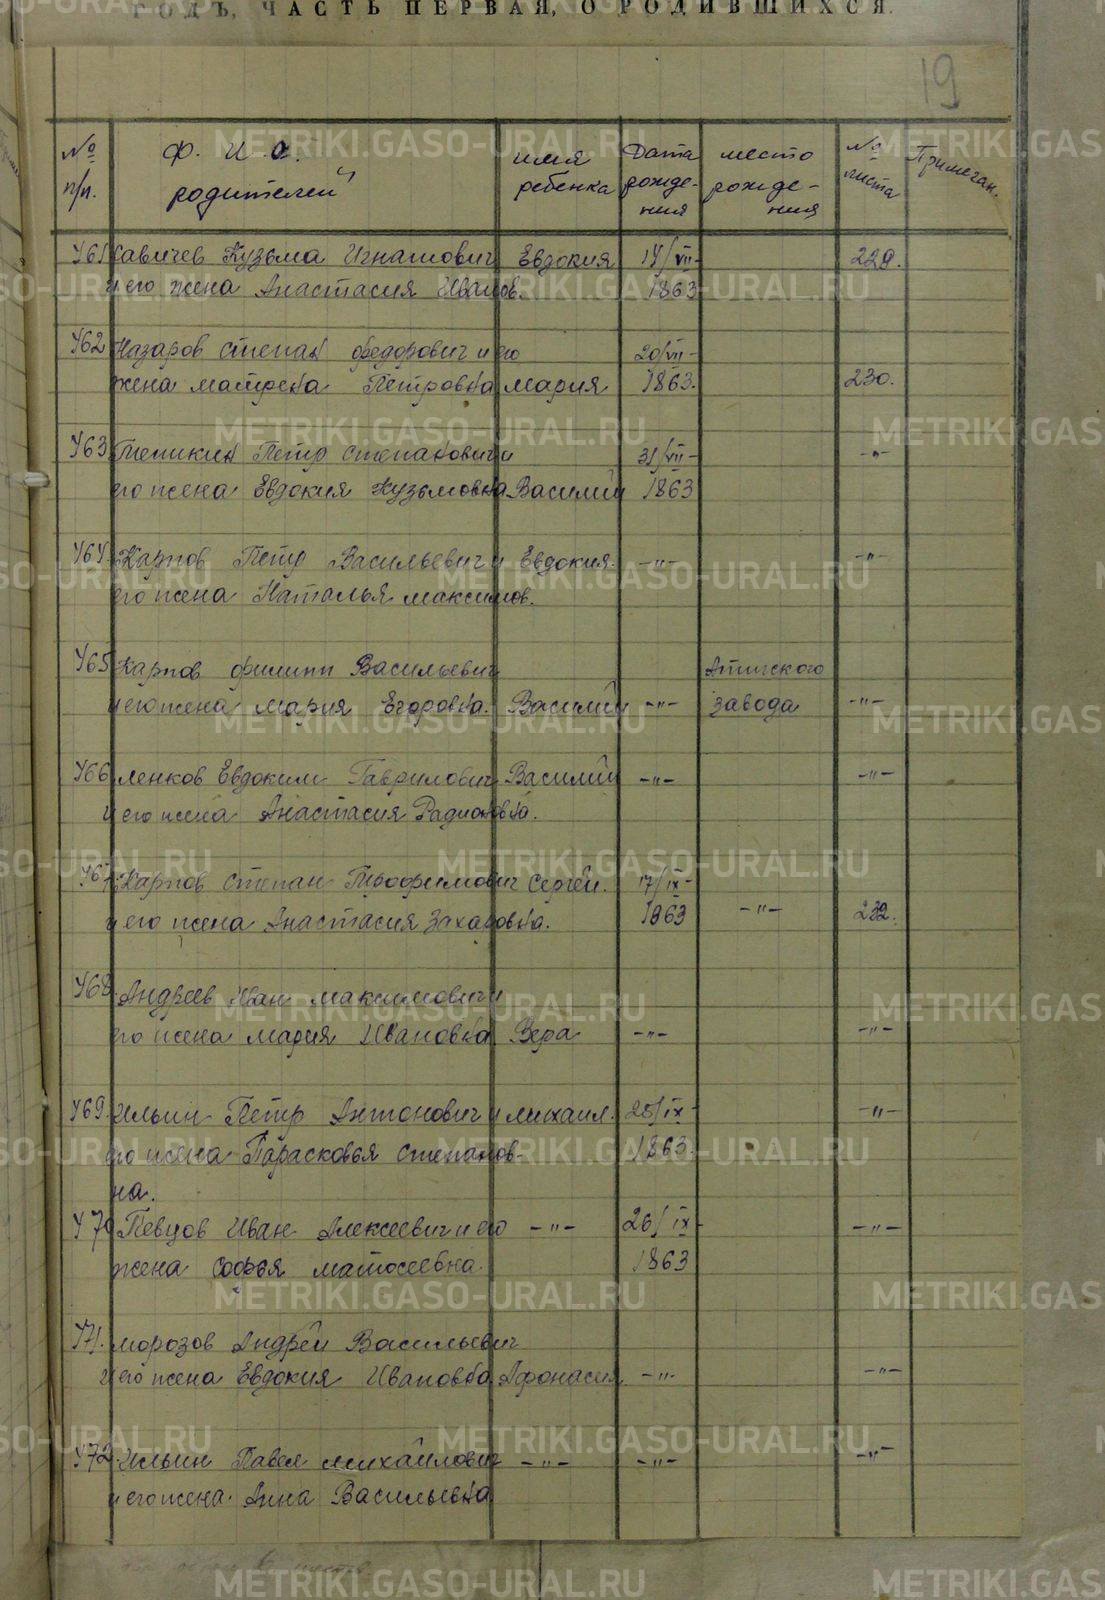 ГОДЪ, ЧАСТЬ ПЕРВАЯ, О РОДИВШИХСЯ.
19
№ п/п. Ф. И. О. родителей имя ребенка Дата рождения место рождения № листа Примечан.
461 Савичев Кузьма Игнатович Евдокия 14/VII- 229.
и его жена Анастасия Иванов. 1863
462 Назаров Степан Федорович и его 20/VII-
жена Матрена Петровна Мария 1863. 230.
463 Петр Степанович и 31/VII- -"-
его жена Евдокия Кузьмовна Василий 1863
464. Карпов Петр Васильевич и Евдокия. -"- -"-
его жена Наталья Максимов.
465 Карпов Филипп Васильевич Атигского
и его жена Мария Егоровна. Василий -"- завода -"-
466 Ленков Евдоким Гаврилович Василий -"- -"-
и его жена Анастасия Радионовна.
467. Карпов Степан Трофимович Сергей. 17/IX-
и его жена Анастасия Захаровна. 1863 -"- 232.
468. Андреев Иван Максимович и
его жена Мария Ивановна Вера -"- -"-
469. Ильин Петр Антонович и Михаил. 25/IX- -"-
его жена Парасковья Степанов- 1863.
на.
470 Певцов Иван Алексеевич и его -"- 26/IX- -"-
жена Софья Матосеевна. 1863
471. Морозов Андрей Васильевич
и его жена Евдокия Ивановна Афонасия -"- -"-
472 Ильин Павел Михайлович -"- -"- -"-
и его жена. Анна Васильевна
METRIKI.GASO-URAL.RU